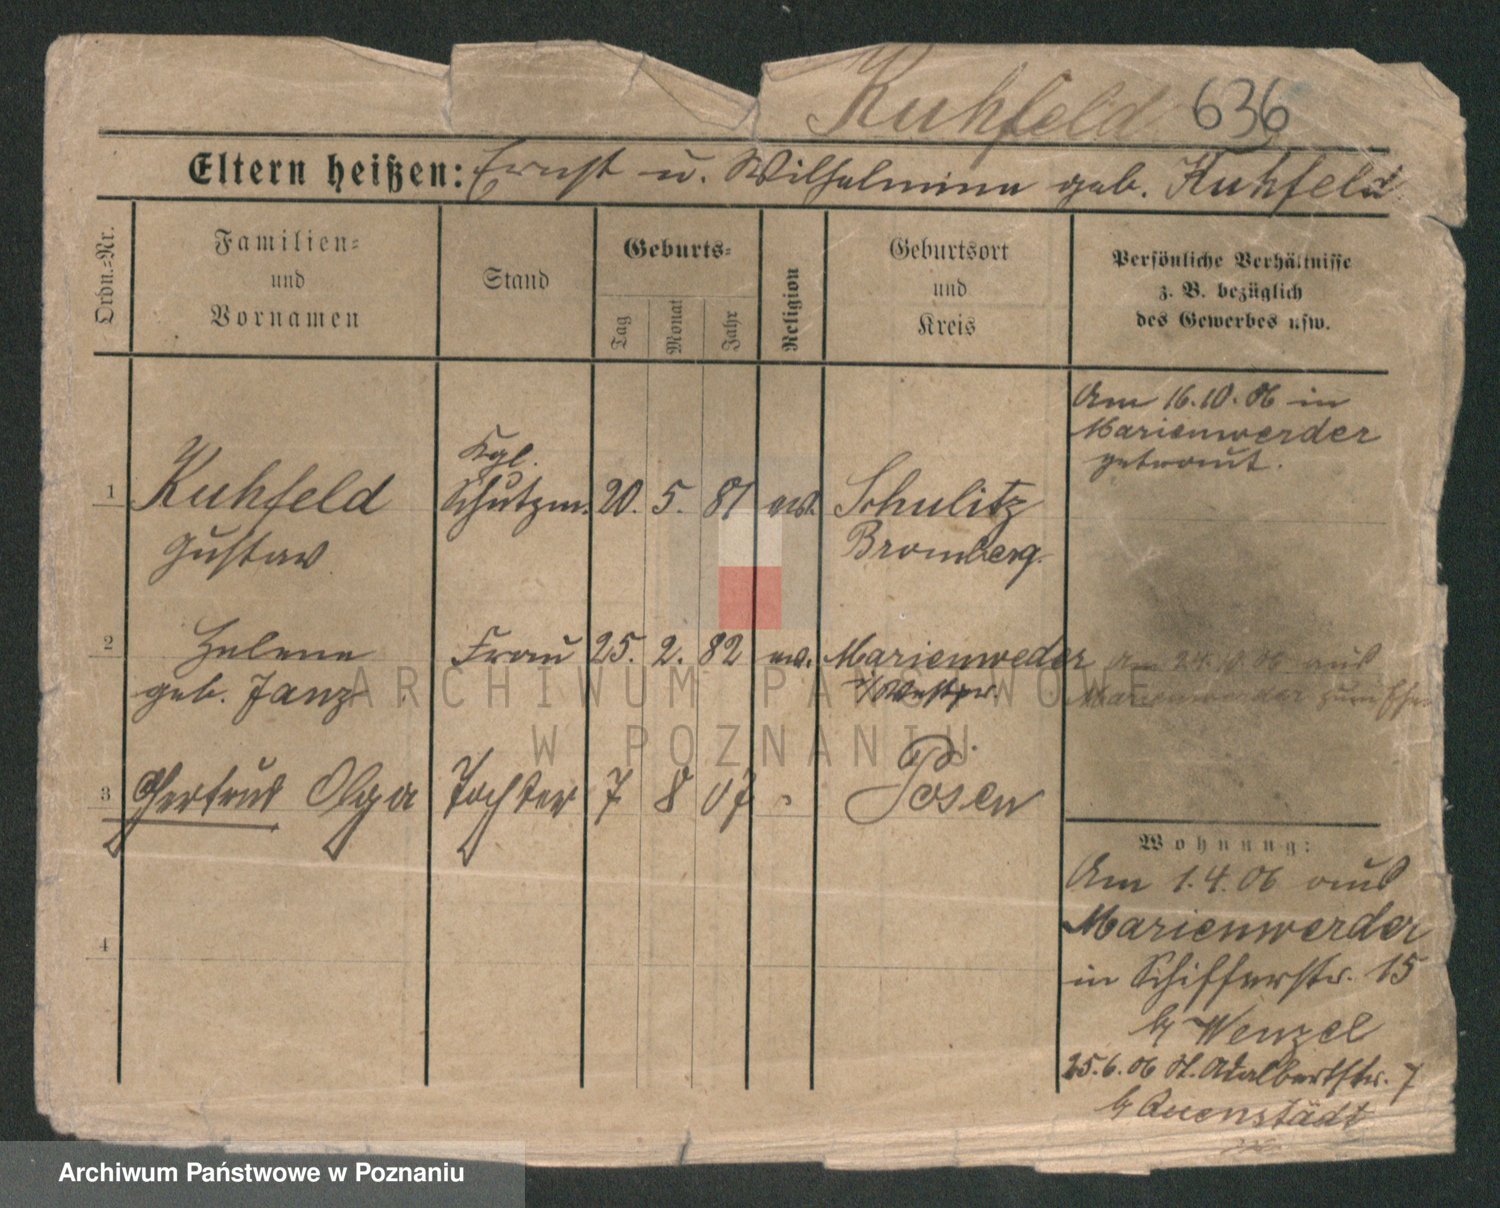 Kuhfeld 636
Eltern heißen: Ernst u. Wilhelmine geb. Kuhfeld
Ordn.-Nr.
Familien-
und
Vornamen
Stand
Geburts-
Tag
Monat
Jahr
Religion
Geburtsort
und
Kreis
Persönliche Verhältnisse
z. B. bezüglich
des Gewerbes usw.
Am 16.10.06 in
Marienwerder
getraut.
Kgl.
1 Kuhfeld Schutzm. 20. 5. 81 ev. Schulitz
Gustav Bromberg.
2 Helene Frau 25. 2. 82 ev. Marienweder
geb. Janz i/Westpr.
Am 24. 06 aus
Marienwerder zum
3 Gertrud Olga Tochter 7 8 07 Posen
Wohnung:
Am 1.4.06 aus
Marienwerder
in Schifferstr. 15
b/ Wenzel
25.6.06 St. Adalbertstr. 7
b/ Quenstädt
4
ARCHIWUM PAŃSTWOWE
W POZNANIU
Archiwum Państwowe w Poznaniu